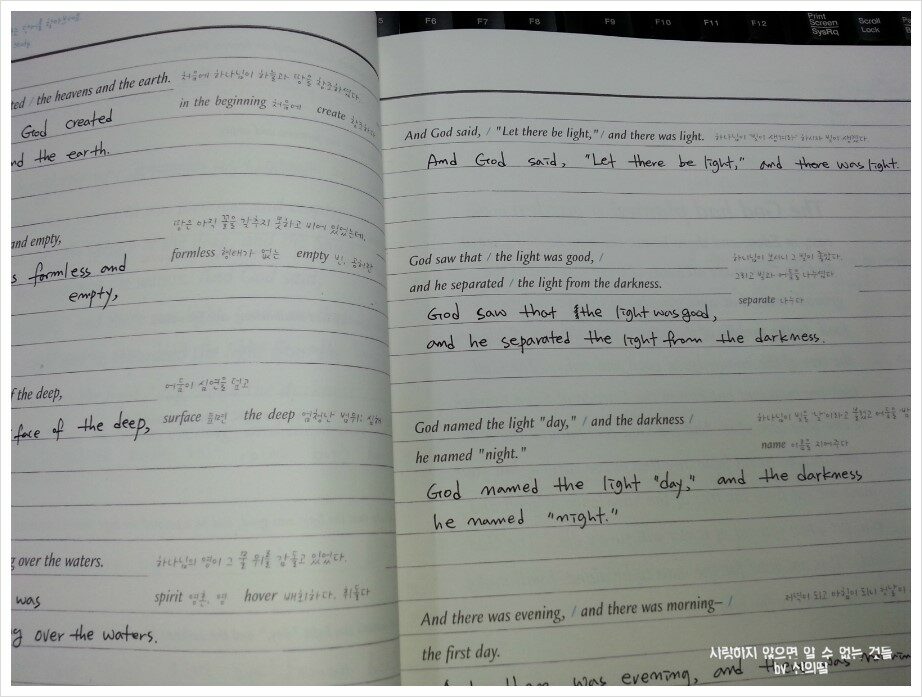 5 F6 F7 F8 F9 F10 F11 F12 Print Screen SysRq Scroll Lock
ted / the heavens and the earth. 처음에 하나님이 하늘과 땅을 창조하셨다.
God created
in the beginning 처음에 create 창조하다
nd the earth.
땅은 아직 꼴을 갖추지 못하고 비어 있었는데,
and empty,
formless 형태가 없는 empty 빈, 공허한
s formless and
empty,
f the deep, 어둠이 심연을 덮고
face of the deep,
surface 표면 the deep 엄청난 범위의 심해
g over the waters. 하나님의 영이 그 물 위를 감돌고 있었다.
was
spirit 영혼, 영 hover 배회하다, 휘돌다
g over the waters.
And God said, / "Let there be light," / and there was light. 하나님이 "빛이 생겨라" 하시자 빛이 생겼다.
And God said, "Let there be light," and there was light.
God saw that / the light was good, / 하나님이 보시니 그 빛이 좋았다.
그리고 빛과 어둠을 나누셨다.
and he separated / the light from the darkness.
separate 나누다
God saw that the light was good,
and he separated the light from the darkness.
God named the light "day," / and the darkness / 하나님이 빛을 '낮'이라고 불렀고 어둠을 '밤
he named "night." name 이름을 지어주다
God named the light "day," and the darkness
he named "night."
And there was evening, / and there was morning– / 저녁이 되고 아침이 되니 첫날이
the first day.
And there was evening, and there was mornin
사랑하지 않으면 알 수 없는 것들
by 신의딸